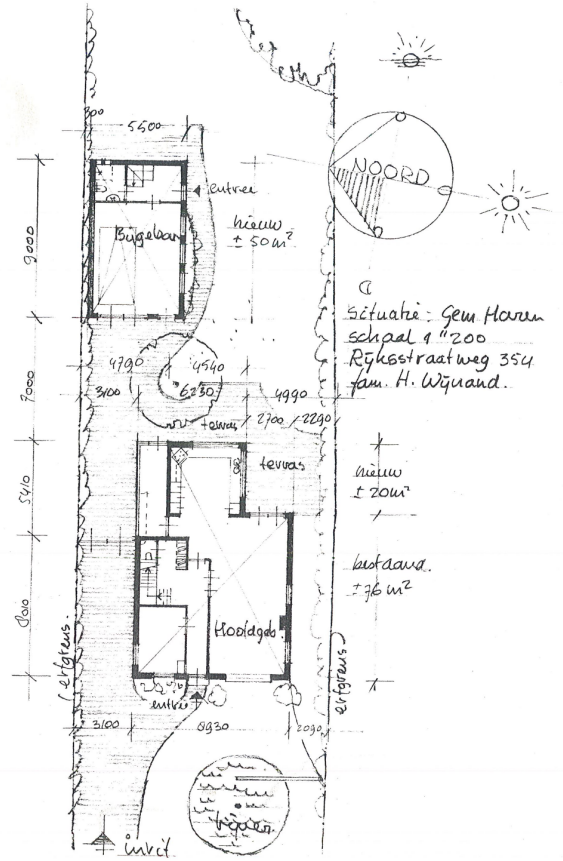 300
5500
entree
NOORD
Bijgebouw
nieuw
± 50 m²
9000
Situatie: Gem Haren
schaal 1 " 200
Rijksstraatweg 354
fam. H. Wijnand.
4790
4540
7000
3100
6230
4990
terras
2700
2290
terras
nieuw
± 20 m²
5410
bestaand.
± 76 m²
8010
Hoofdgeb.
erfgrens
erfgrens
entree
3100
8930
2090
vijver
inrit